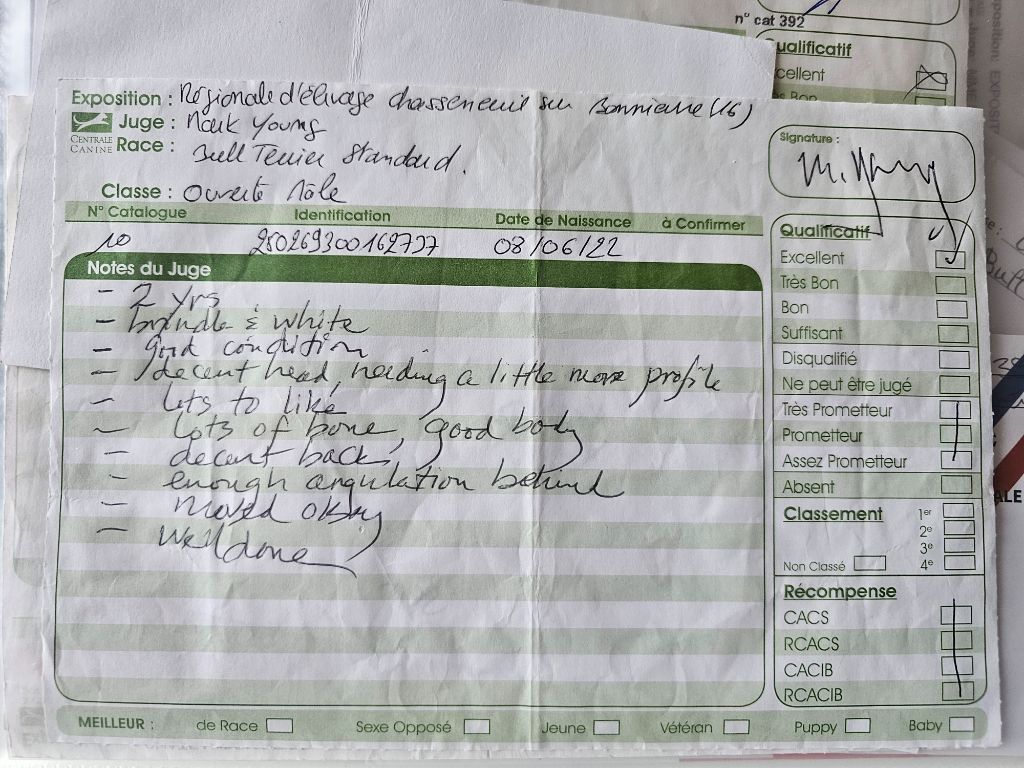 n° cat 392
ualificatif
cellent
Bon
Exposition : Régionale d'élevage chasseneuil sur Bonnieure (16)
Juge : Mark Young
CENTRALE CANINE
Race : Bull Terrier Standard.
Classe : Ouverte Mâle
N° Catalogue Identification Date de Naissance à Confirmer
10 250269300162737 08/06/22
Notes du Juge
- 2 yrs
- brindle & white
- good condition
- decent head, needing a little more profile
- lots to like
- lots of bone, good body
- decent back,
- enough angulation behind
- moved okay
- well done
Signature :
M. Young
Qualificatif
Excellent
Très Bon
Bon
Suffisant
Disqualifié
Ne peut être jugé
Très Prometteur
Prometteur
Assez Prometteur
Absent
Classement 1er
2e
3e
Non Classé 4e
Récompense
CACS
RCACS
CACIB
RCACIB
MEILLEUR : de Race Sexe Opposé Jeune Vétéran Puppy Baby